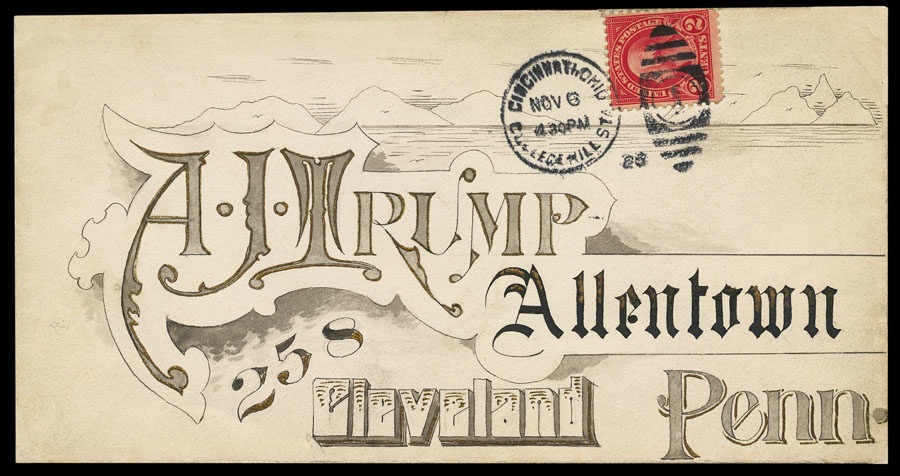 CINCINNATI, OHIO
NOV 6
4 30 PM
COLLEGE HILL STA
23
UNITED STATES POSTAGE
2 CENTS 2
A·J·TRUMP
Allentown
258
Cleveland
Penn.